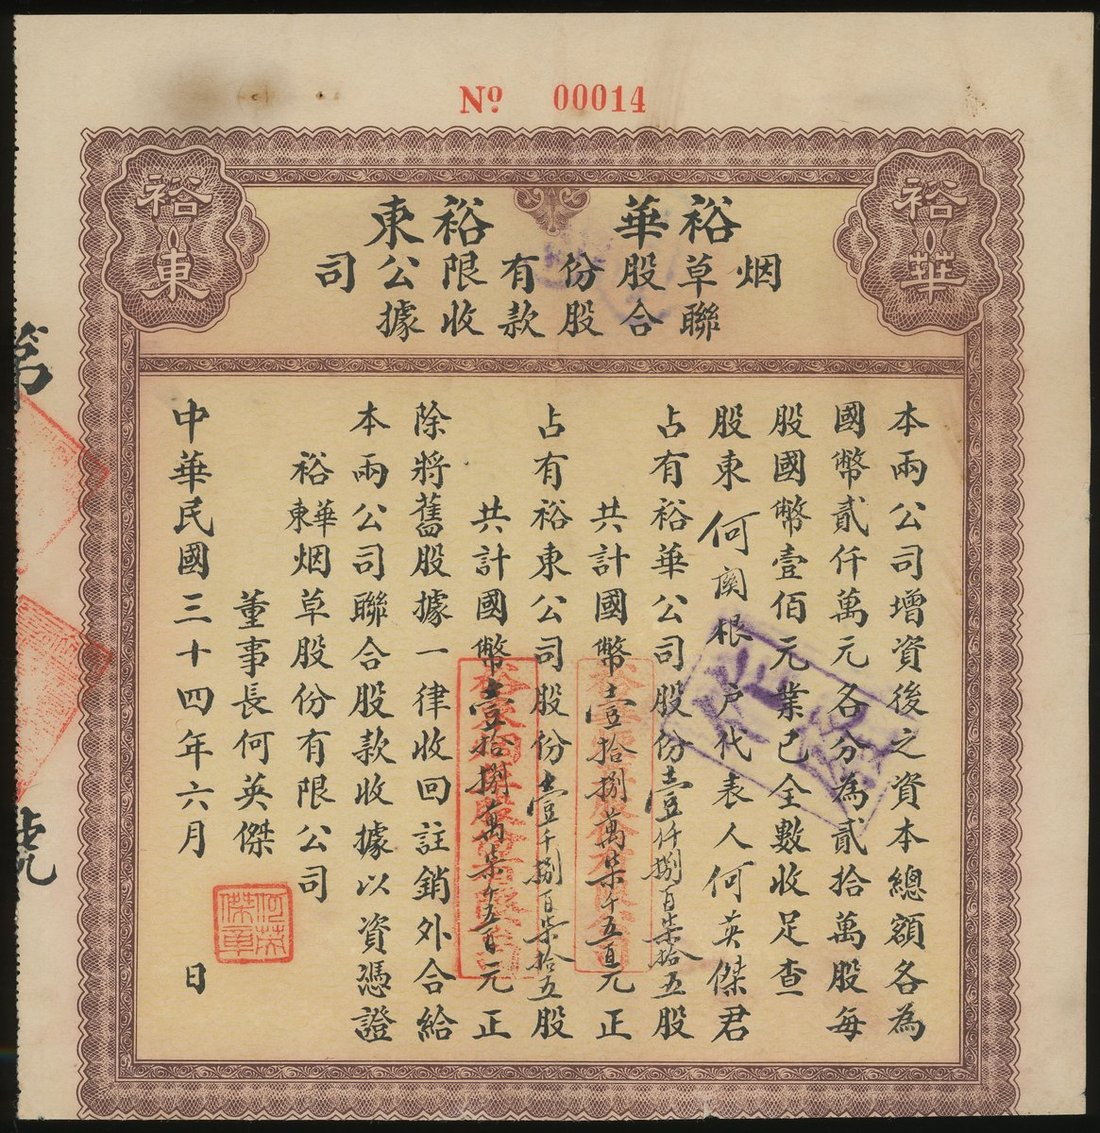 Nº 00014
裕華
裕東
裕華 裕東
烟草股份有限公司
聯合股款收據
本兩公司增資後之資本總額各為
國幣貳仟萬元各分為貳拾萬股每
股國幣壹佰元業已全數收足查
股東何閔根戶代表人何英傑君
占有裕華公司股份壹仟捌百柒拾五股
共計國幣壹拾捌萬柒千五百元正
占有裕東公司股份壹千捌百柒拾五股
共計國幣壹拾捌萬柒千五百元正
除將舊股據一律收回註銷外合給
本兩公司聯合股款收據以資憑證
裕華東烟草股份有限公司
董事長何英傑
何英傑章
中華民國三十四年六月 日
第
號